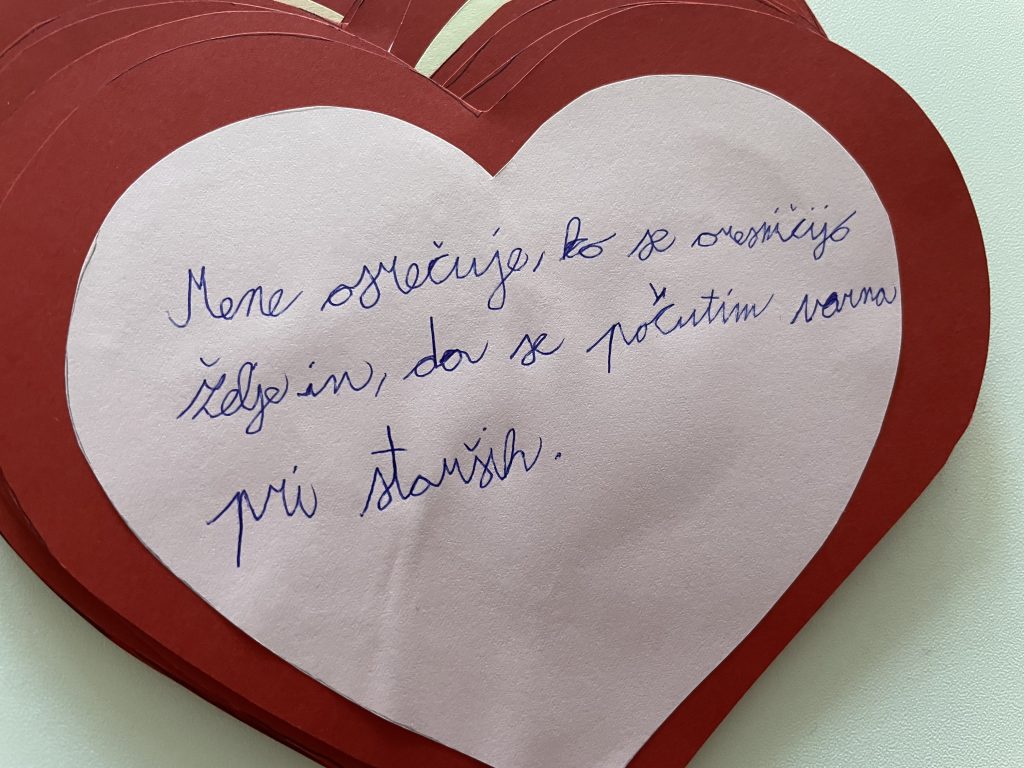 Mene osrečuje, ko se uresničijo
želje in, da se počutim varna
pri starših.